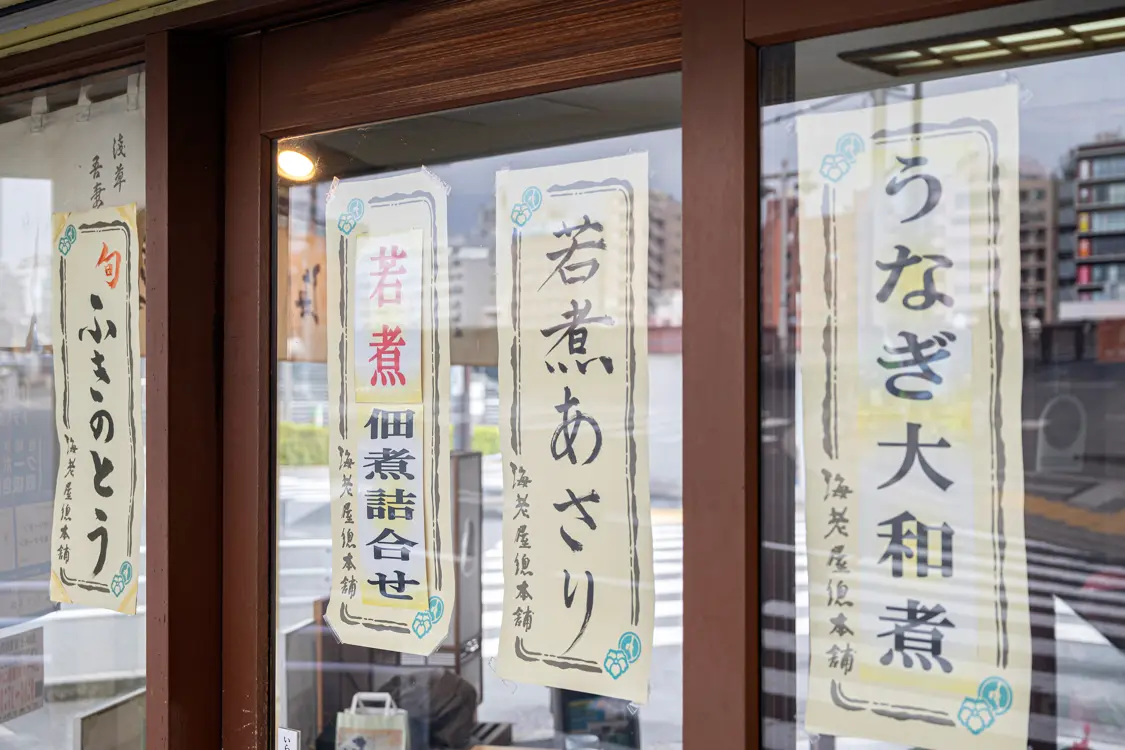 浅草
吾妻
旬
ふきのとう
海老屋總本舗
若煮
佃煮詰合せ
海老屋總本舗
若煮あさり
海老屋總本舗
うなぎ大和煮
海老屋總本舗